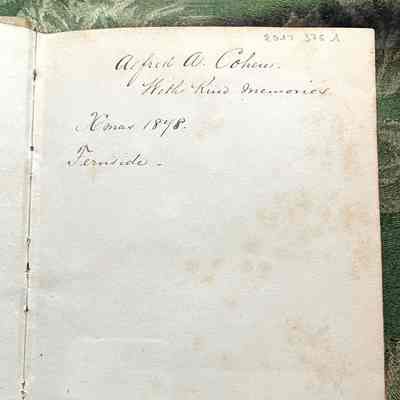 2517 376 1
Alfred A. Cohen.
With Kind memories
Xmas 1898.
Fernside -